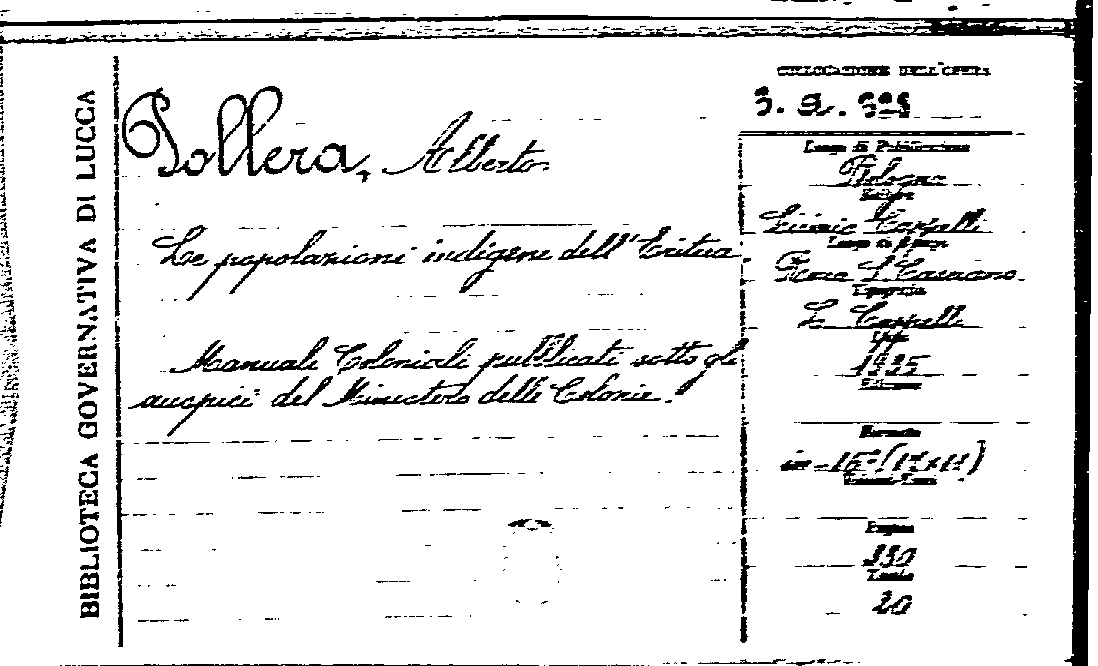 BIBLIOTECA GOVERNATIVA DI LUCCA
Pollera, Alberto.
Le popolazioni indigene dell'Eritrea.
Manuali Coloniali pubblicati sotto gli
auspici del Ministero delle Colonie.
COLLOCAZIONE DELL'OPERA
3. 2.
Luogo di Pubblicazione
Bologna
Editore
Licinio Cappelli
Luogo di stampa
Rocca S. Casciano
Tipografia
L. Cappelli
1935
Edizione
Formato
in-16°
Pagine
330
Tavole
20